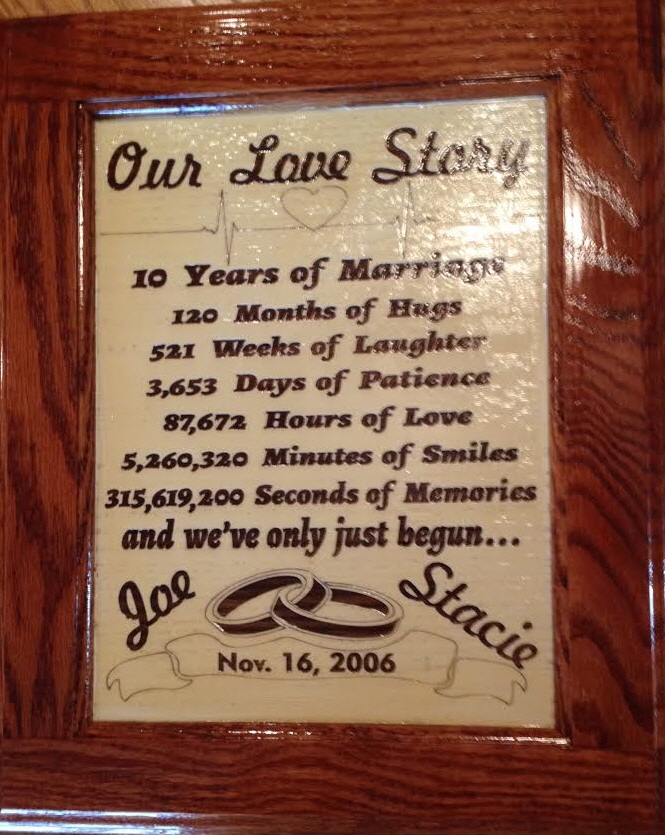 Our Love Story
10 Years of Marriage
120 Months of Hugs
521 Weeks of Laughter
3,653 Days of Patience
87,672 Hours of Love
5,260,320 Minutes of Smiles
315,619,200 Seconds of Memories
and we've only just begun...
Joe Stacie
Nov. 16, 2006